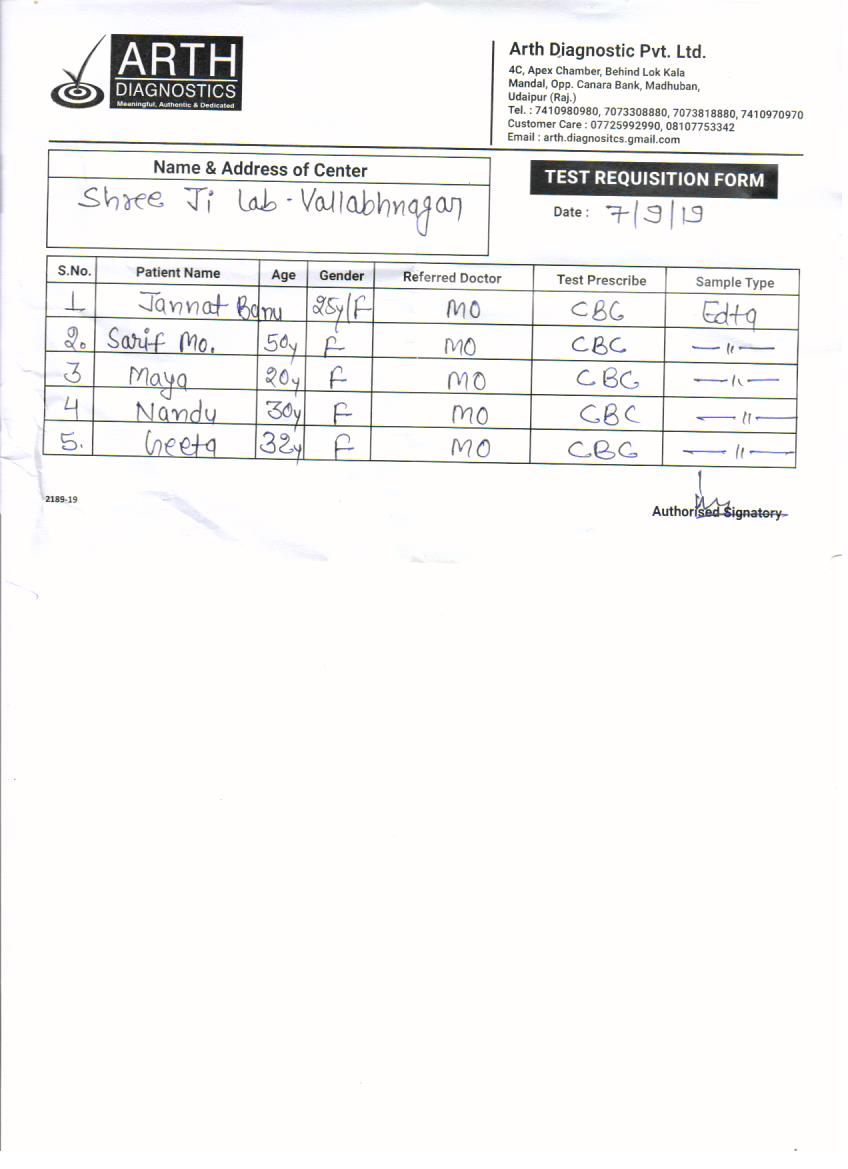 ARTH
DIAGNOSTICS
Meaningful, Authentic & Dedicated
Arth Diagnostic Pvt. Ltd.
4C, Apex Chamber, Behind Lok Kala
Mandal, Opp. Canara Bank, Madhuban,
Udaipur (Raj.)
Tel. : 7410980980, 7073308880, 7073818880, 7410970970
Customer Care : 07725992990, 08107753342
Email : arth.diagnositcs.gmail.com
Name & Address of Center
Shree Ji Lab - Vallabhnagar
TEST REQUISITION FORM
Date : 7/9/19
S.No. Patient Name Age Gender Referred Doctor Test Prescribe Sample Type
1 Jannat Banu 25y/F MO CBC Edta
2. Sarif Mo. 50y F MO CBC —"—
3 Maya 20y F MO CBC —"—
4 Nandu 30y F MO CBC —"—
5. Geeta 32y F MO CBC —"—
2189-19
Authorised Signatory